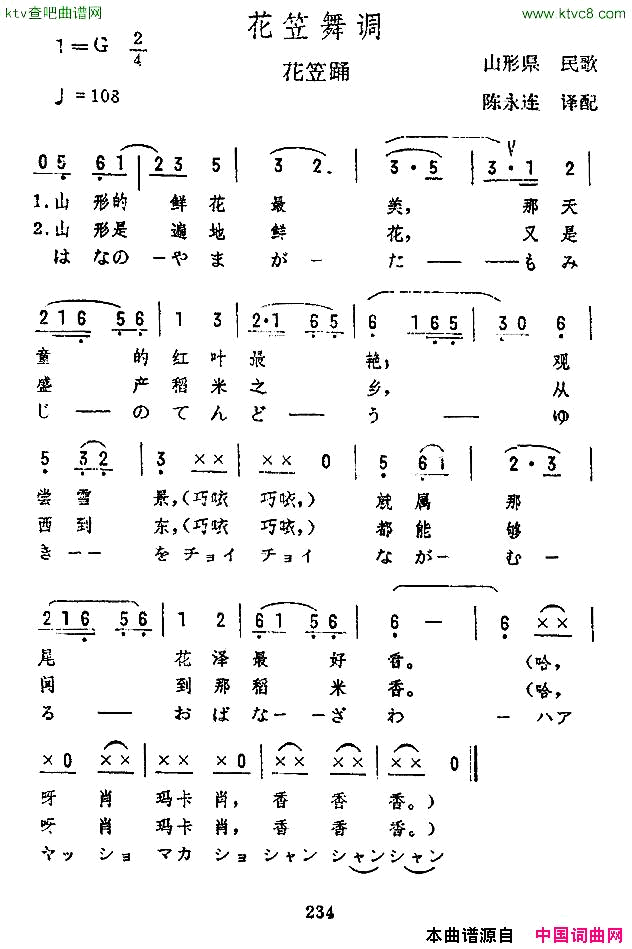 ktv查吧曲谱网
www.ktvc8.com
花笠舞调
1=G 2/4
花笠踊
山形県 民歌
♩=108
陈永连 译配
0 5 6 1 | 2 3 5 | 3 2. | 3·5 | 3·1 2 |
1.山 形的 鲜花 最 美, 那天
2.山 形是 遍地 鲜 花, 又是
は なの ーやま が ー た ーー もみ
2 1 6 5 6 | 1 3 | 2·1 6 5 | 6 1 6 5 | 3 0 6 |
童 的 红叶 最 艳, 观
盛 产 稻米 之 乡, 从
じ ーー のてん ど ー う ーー ゆ
5 3 2 | 3 × × | × × 0 | 5 6 1 | 2·3 |
尝雪 景,(巧呅 巧呅,) 就属 那
西到 东,(巧呅 巧呅,) 都能 够
き ーー を チョイ チョイ なが ー む ー
2 1 6 5 6 | 1 2 | 6 1 5 6 | 6 — | 6 × × |
尾 花泽 最 好 香。 (哈,
闻 到那 稻 米 香。 (哈,
る ーー おば な ーー ざ わ ー ハア
× 0 × × | × × × | × × × × | × × × × | × 0 ‖
呀 肖 玛卡 肖, 香 香 香。)
呀 肖 玛卡 肖, 香 香 香。)
ヤッ ショ マカ ショ シャン シャン シャン
234
本曲谱源自 中国词曲网